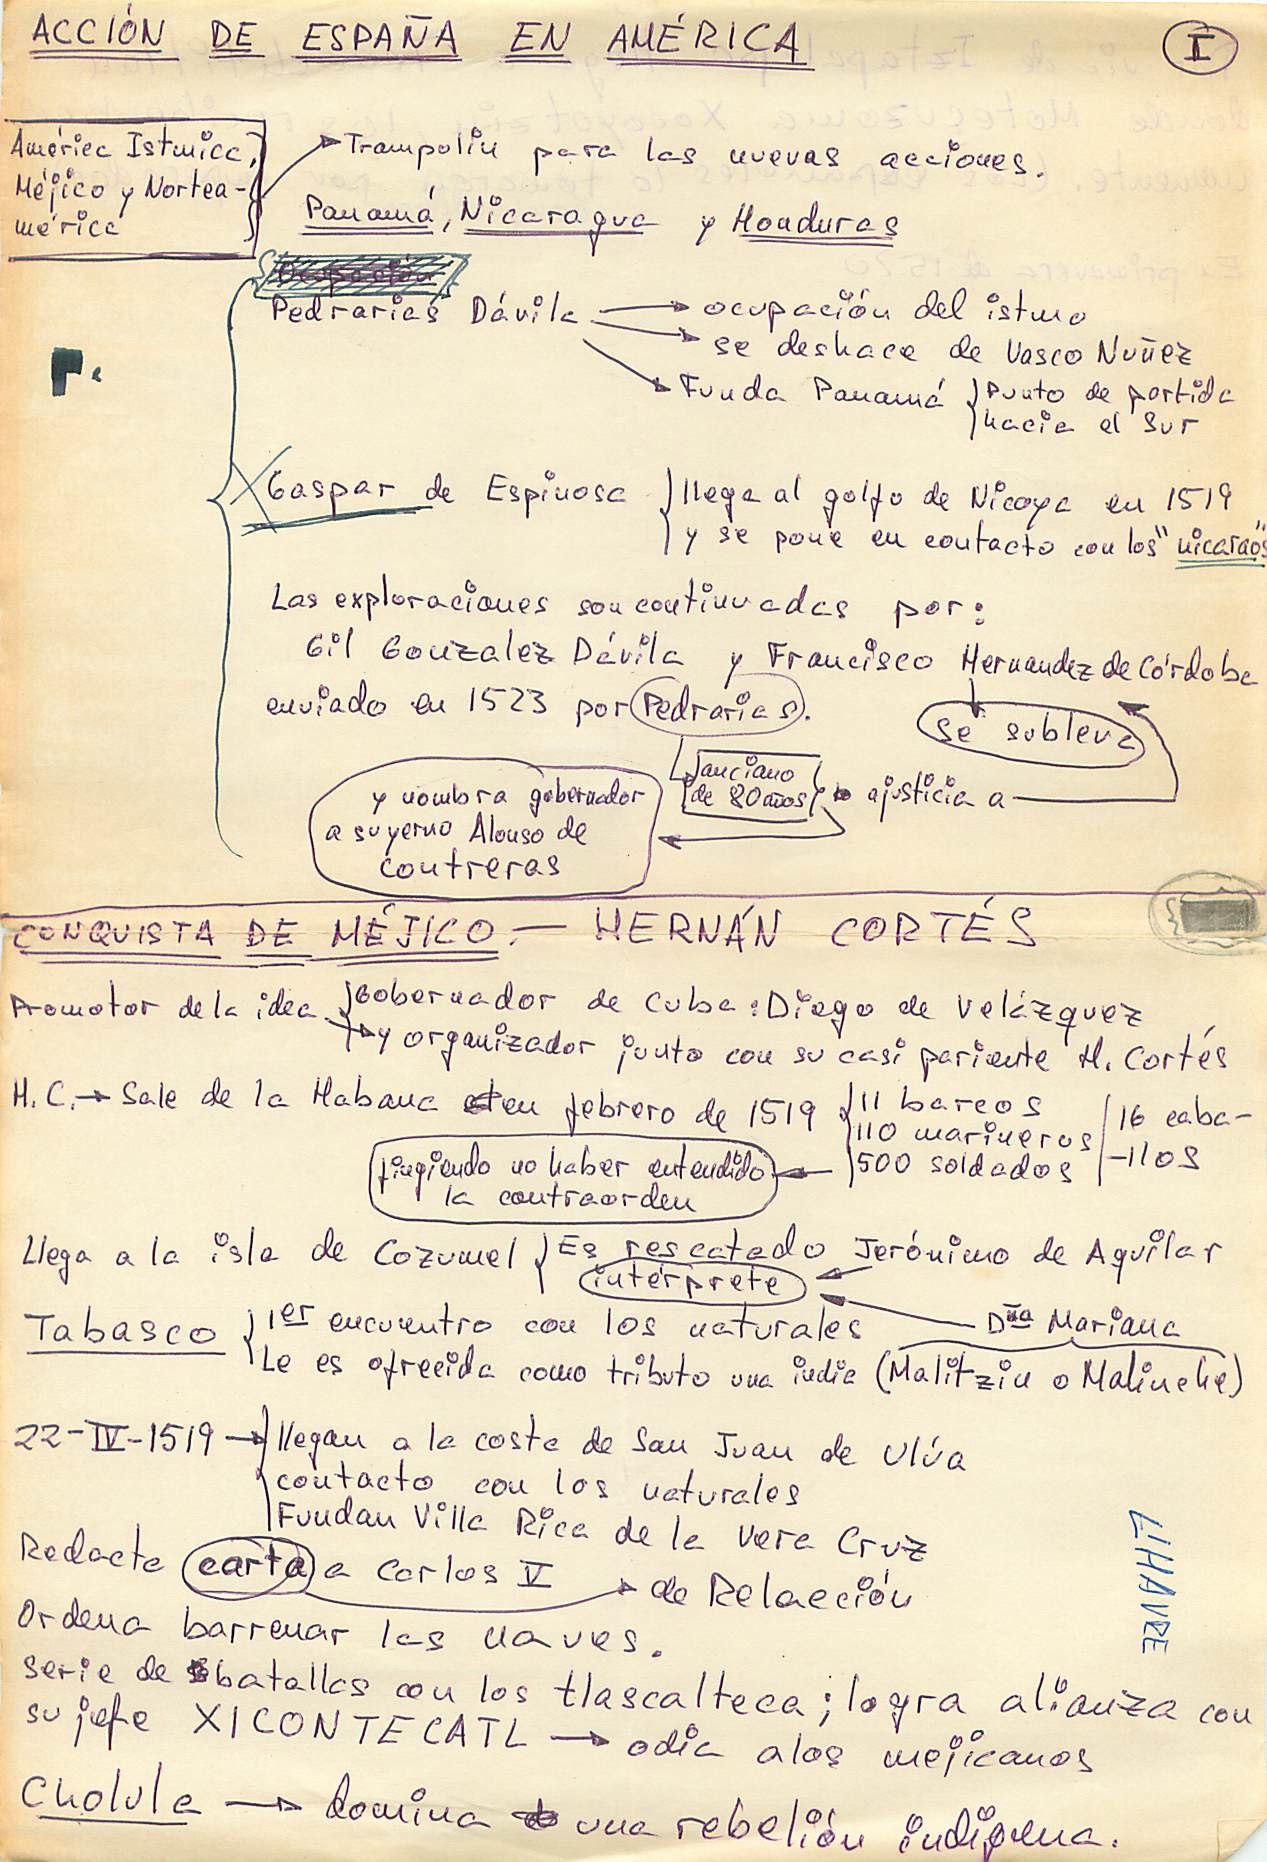 ACCIÓN DE ESPAÑA EN AMÉRICA
I
América Istmica,
Méjico y Nortea-
mérica
Trampolin para las nuevas acciones.
Panamá, Nicaragua y Honduras
Ocupación
Pedrarias Dávila
ocupación del istmo
se deshace de Vasco Nuñez
Funda Panamá
Punto de partida
hacia el Sur
Gaspar de Espinosa
llega al golfo de Nicoya en 1519
y se pone en contacto con los "nicaraos"
Las exploraciones son continuadas por:
Gil Gonzalez Dávila y Francisco Hernandez de Córdoba
enviado en 1523 por Pedrarias.
se subleva
anciano
de 80 años
ajusticia a
y nombra gobernador
a su yerno Alonso de
contreras
CONQUISTA DE MÉJICO.- HERNÁN CORTÉS
Promotor de la idea
Gobernador de Cuba: Diego de Velázquez
y organizador junto con su casi pariente H. Cortés
H.C. → Sale de la Habana en febrero de 1519
11 barcos
110 marineros
500 soldados
16 caba-
-llos
fingiendo no haber entendido
la contraorden
Llega a la isla de Cozumel
Es rescatado Jerónimo de Aguilar
intérprete
Tabasco
1er encuentro con los naturales
Dña Mariana
Le es ofrecida como tributo una india (Malitzin o Malinche)
22-IV-1519 →
llegan a la costa de San Juan de Ulúa
contacto con los naturales
Fundan Villa Rica de la Vera Cruz
Redacta carta a Carlos V
de Relacción
Ordena barrenar las naves.
serie de batallas con los tlascalteca; logra alianza con
su jefe XICONTECATL → odia a los mejicanos
Cholula → domina una rebelión indígena.
L'HAVRE